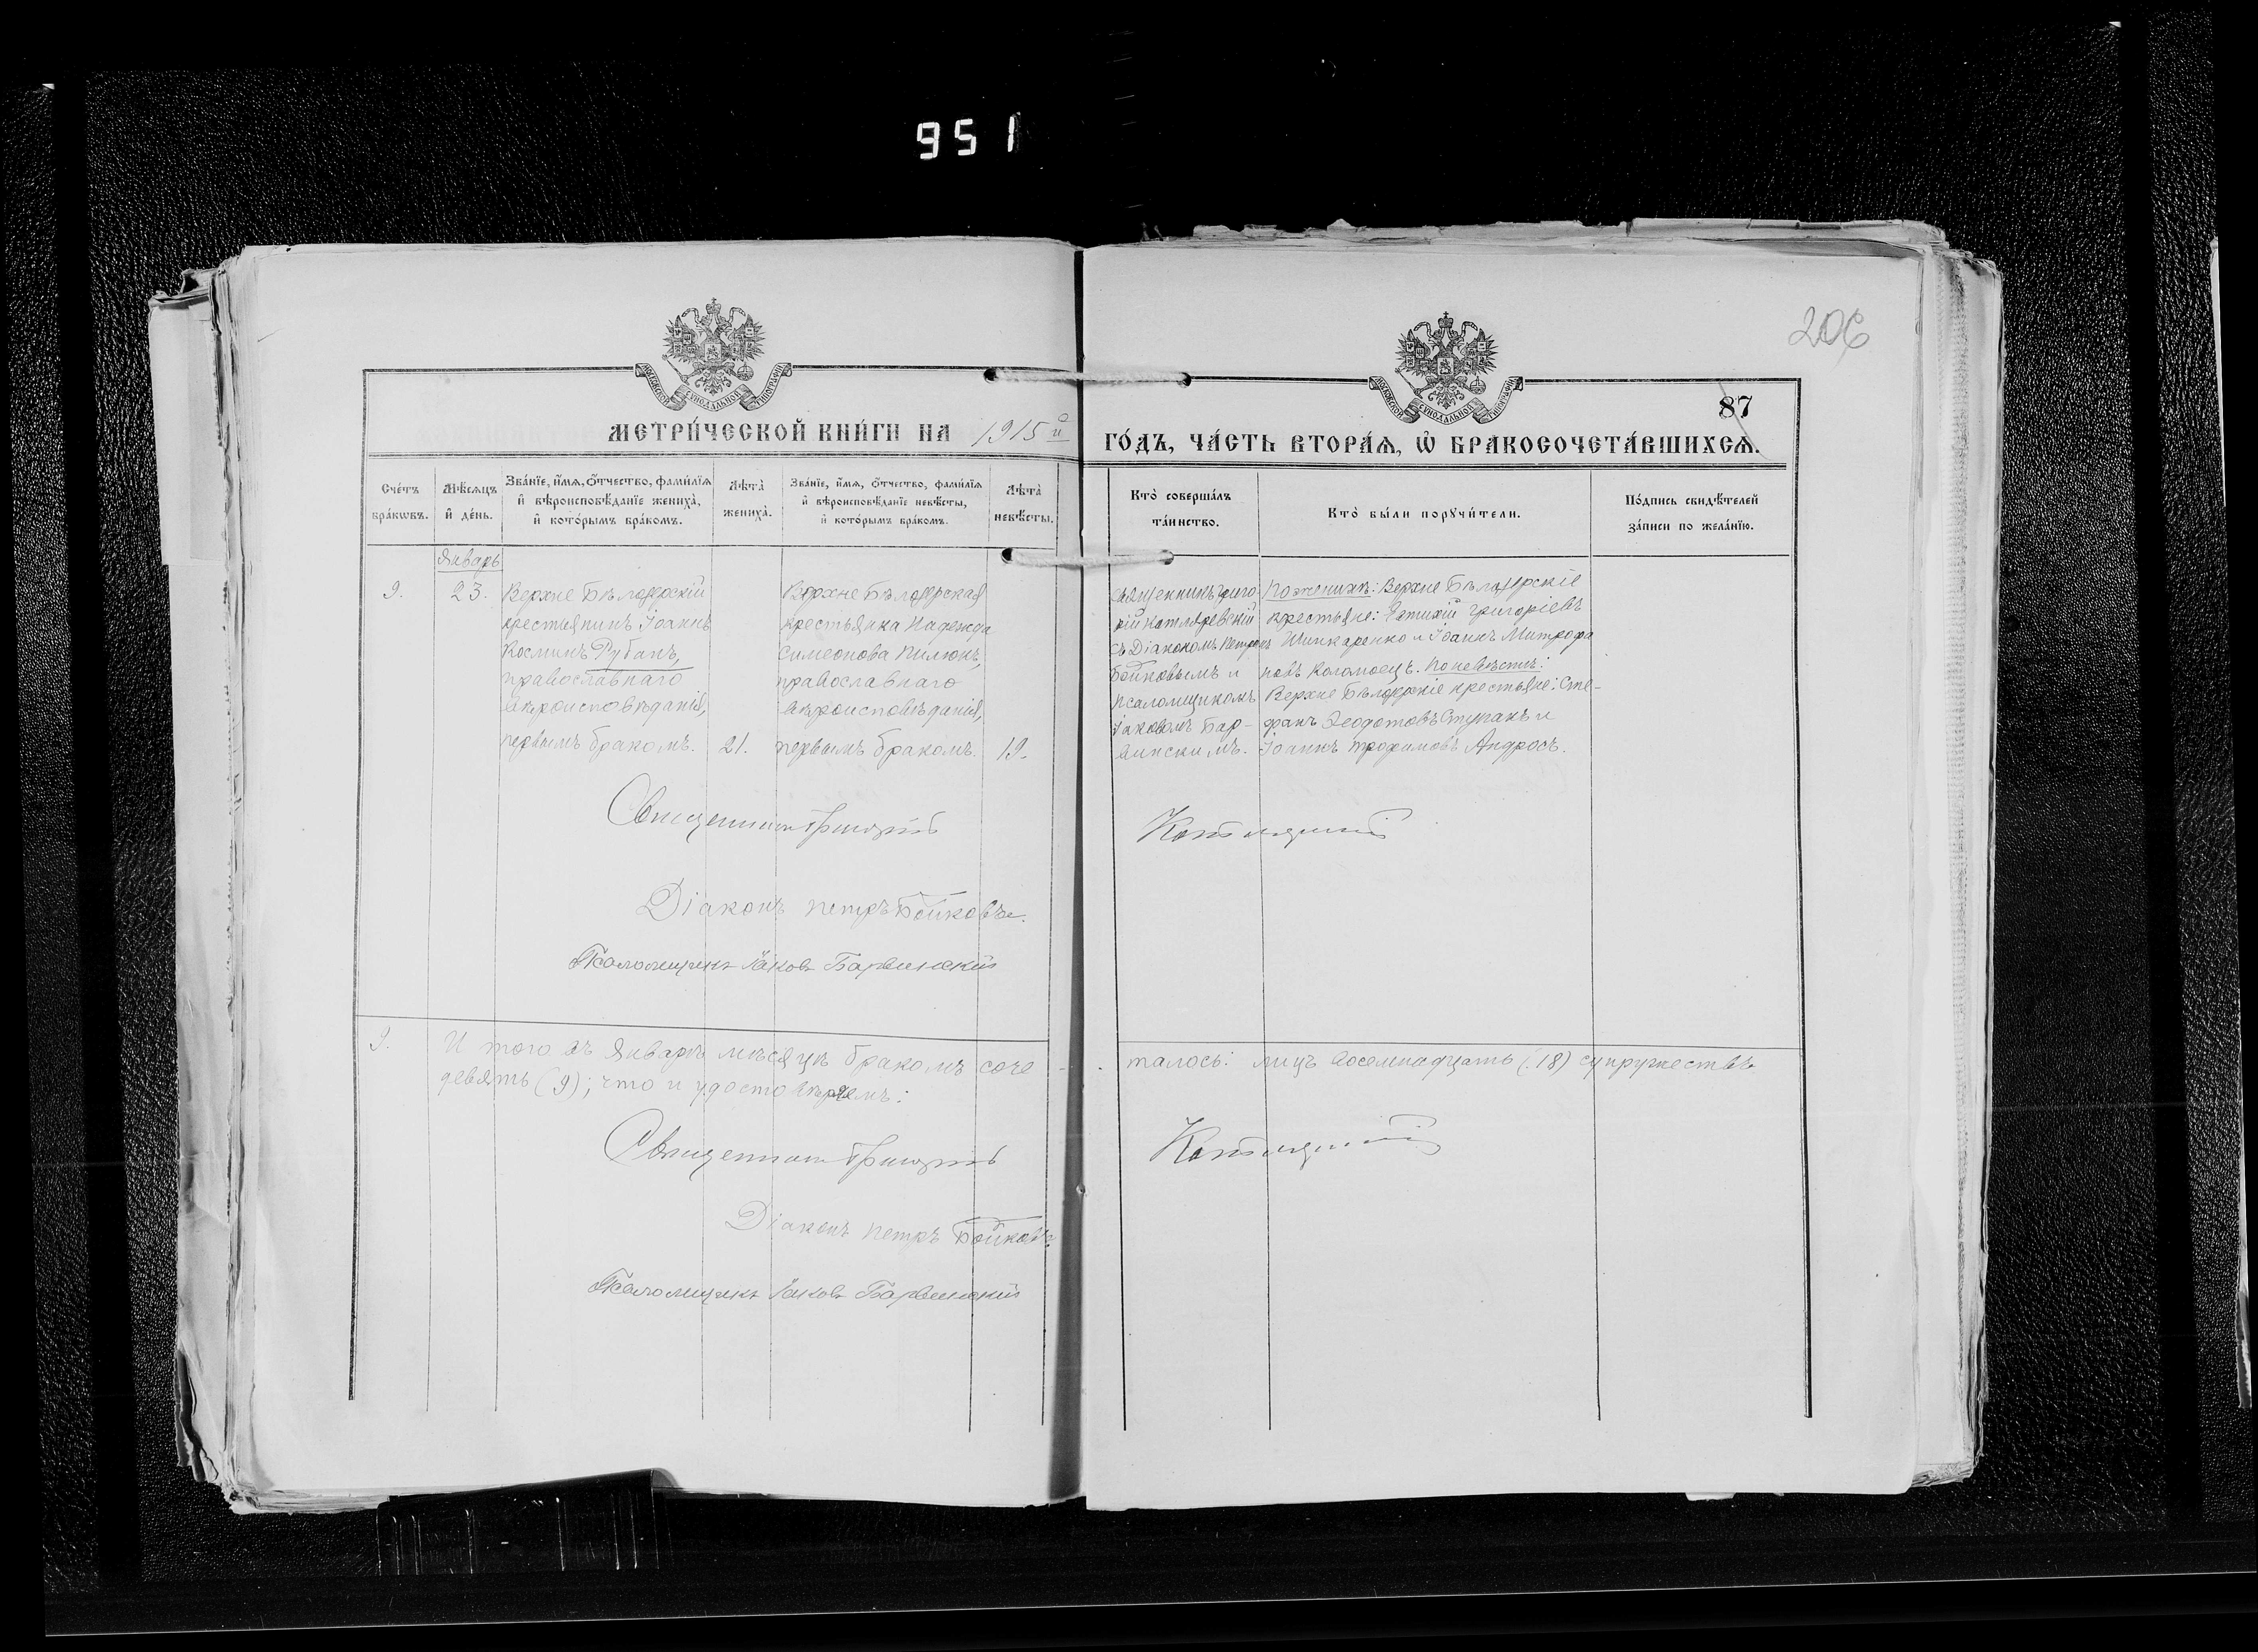 951
206
87
МОСКОВСКОЙ СѴНОДАЛЬНОЙ ТИПОГРАФІИ
МОСКОВСКОЙ СѴНОДАЛЬНОЙ ТИПОГРАФІИ
МЕТРИ́ЧЕСКОЙ КНИ́ГИ НА 1915й ГО́ДЪ, ЧА́СТЬ ВТОРА́Ѧ, Ѡ҆ БРАКОСОЧЕТА́ВШИХСѦ.
Сче́тъ
бра́кѡвъ.
Мѣ́сѧцъ
и҆ де́нь.
Зва́нїе, и҆́мѧ, ѻ҆́тчество, фами́лїѧ
и҆ вѣроисповѣ́данїе жениха̀,
и҆ кото́рымъ бра́комъ.
Лѣта̀
жениха̀.
Зва́нїе, и҆́мѧ, ѻ҆́тчество, фами́лїѧ
и҆ вѣроисповѣ́данїе невѣ́сты,
и҆ кото́рымъ бра́комъ.
Лѣта̀
невѣ́сты.
Кто̀ соверша́лъ
та́инство.
Кто̀ бы́ли порꙋчи́тели.
По́дпись свидѣ́телей
за́писи по жела́нїю.
Январь
9.
23.
Верхне Бѣлозерскій
крестьянинъ Іоаннъ
Косминъ Рубанъ,
православнаго
вѣроисповѣданія,
первымъ бракомъ.
21.
Верхне Бѣлозерская
крестьянка Надежда
Симеонова Пилюкъ,
православнаго
вѣроисповѣданія,
первымъ бракомъ.
19.
Священникъ Григо-
рій Котляревскій
съ Діакономъ Петромъ
Бойковымъ и
псаломщикомъ
Іаковомъ Бар-
винскимъ.
По женихѣ: Верхне Бѣлозерскіе
крестьяне: Евтихій Григоріевъ
Шинкаренко и Іоаннъ Митрофа
новъ Коломоецъ. По невѣстѣ:
Верхне Бѣлозерскіе крестьяне: Сте-
фанъ Ѳеодотовъ Ступакъ и
Іоаннъ Трофимовъ Андросъ.
Священникъ Григорій Котляревскій
Діаконъ Петръ Бойковъ.
Псаломщикъ Іаковъ Барвинскій
9.
И того въ Январѣ мѣсяцѣ бракомъ соче - талось: лицъ восемнадцать (18) супружествъ
девять (9); что и удостовѣряемъ:
Священникъ Григорій Котляревскій
Діаконъ Петръ Бойковъ.
Псаломщикъ Іаковъ Барвинскій